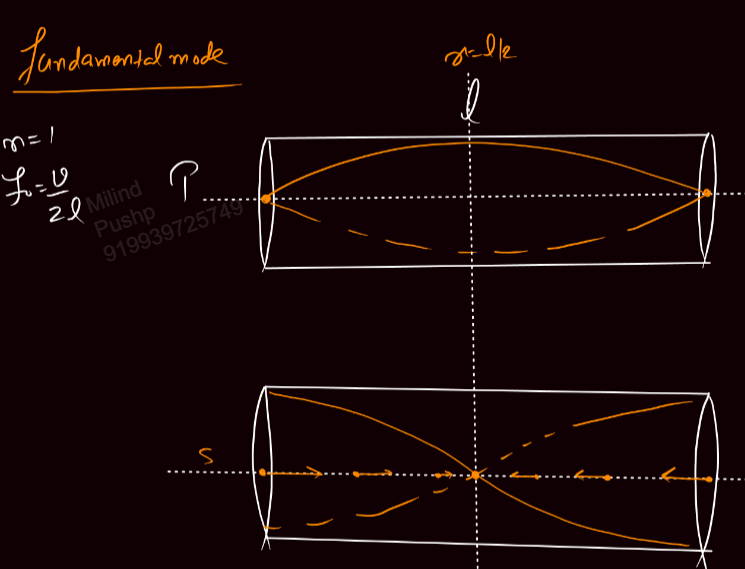 fundamental mode
x=l/2
l
n=1
f₀=v/2l
P
Milind
Pushp
919939725749
S